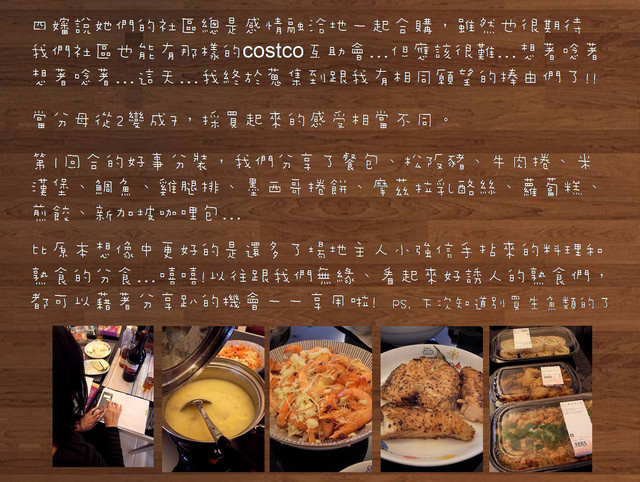 四嬸說她們的社區總是感情融洽地一起合購，雖然也很期待
我們社區也能有那樣的costco互助會...但應該很難...想著唸著
想著唸著...這天...我終於蒐集到跟我有相同願望的捧由們了!!
當分母從2變成7，採買起來的感受相當不同。
第1回合的好事分裝，我們分享了餐包、松阪豬、牛肉捲、米
漢堡、鯛魚、雞腿排、墨西哥捲餅、摩茲拉乳酪絲、蘿蔔糕、
煎餃、新加坡咖哩包...
比原本想像中更好的是還多了場地主人小強信手拈來的料理和
熟食的分食...嘻嘻!以往跟我們無緣、看起來好誘人的熟食們，
都可以藉著分享趴的機會一一享用啦! PS. 下次知道別買生魚類的了